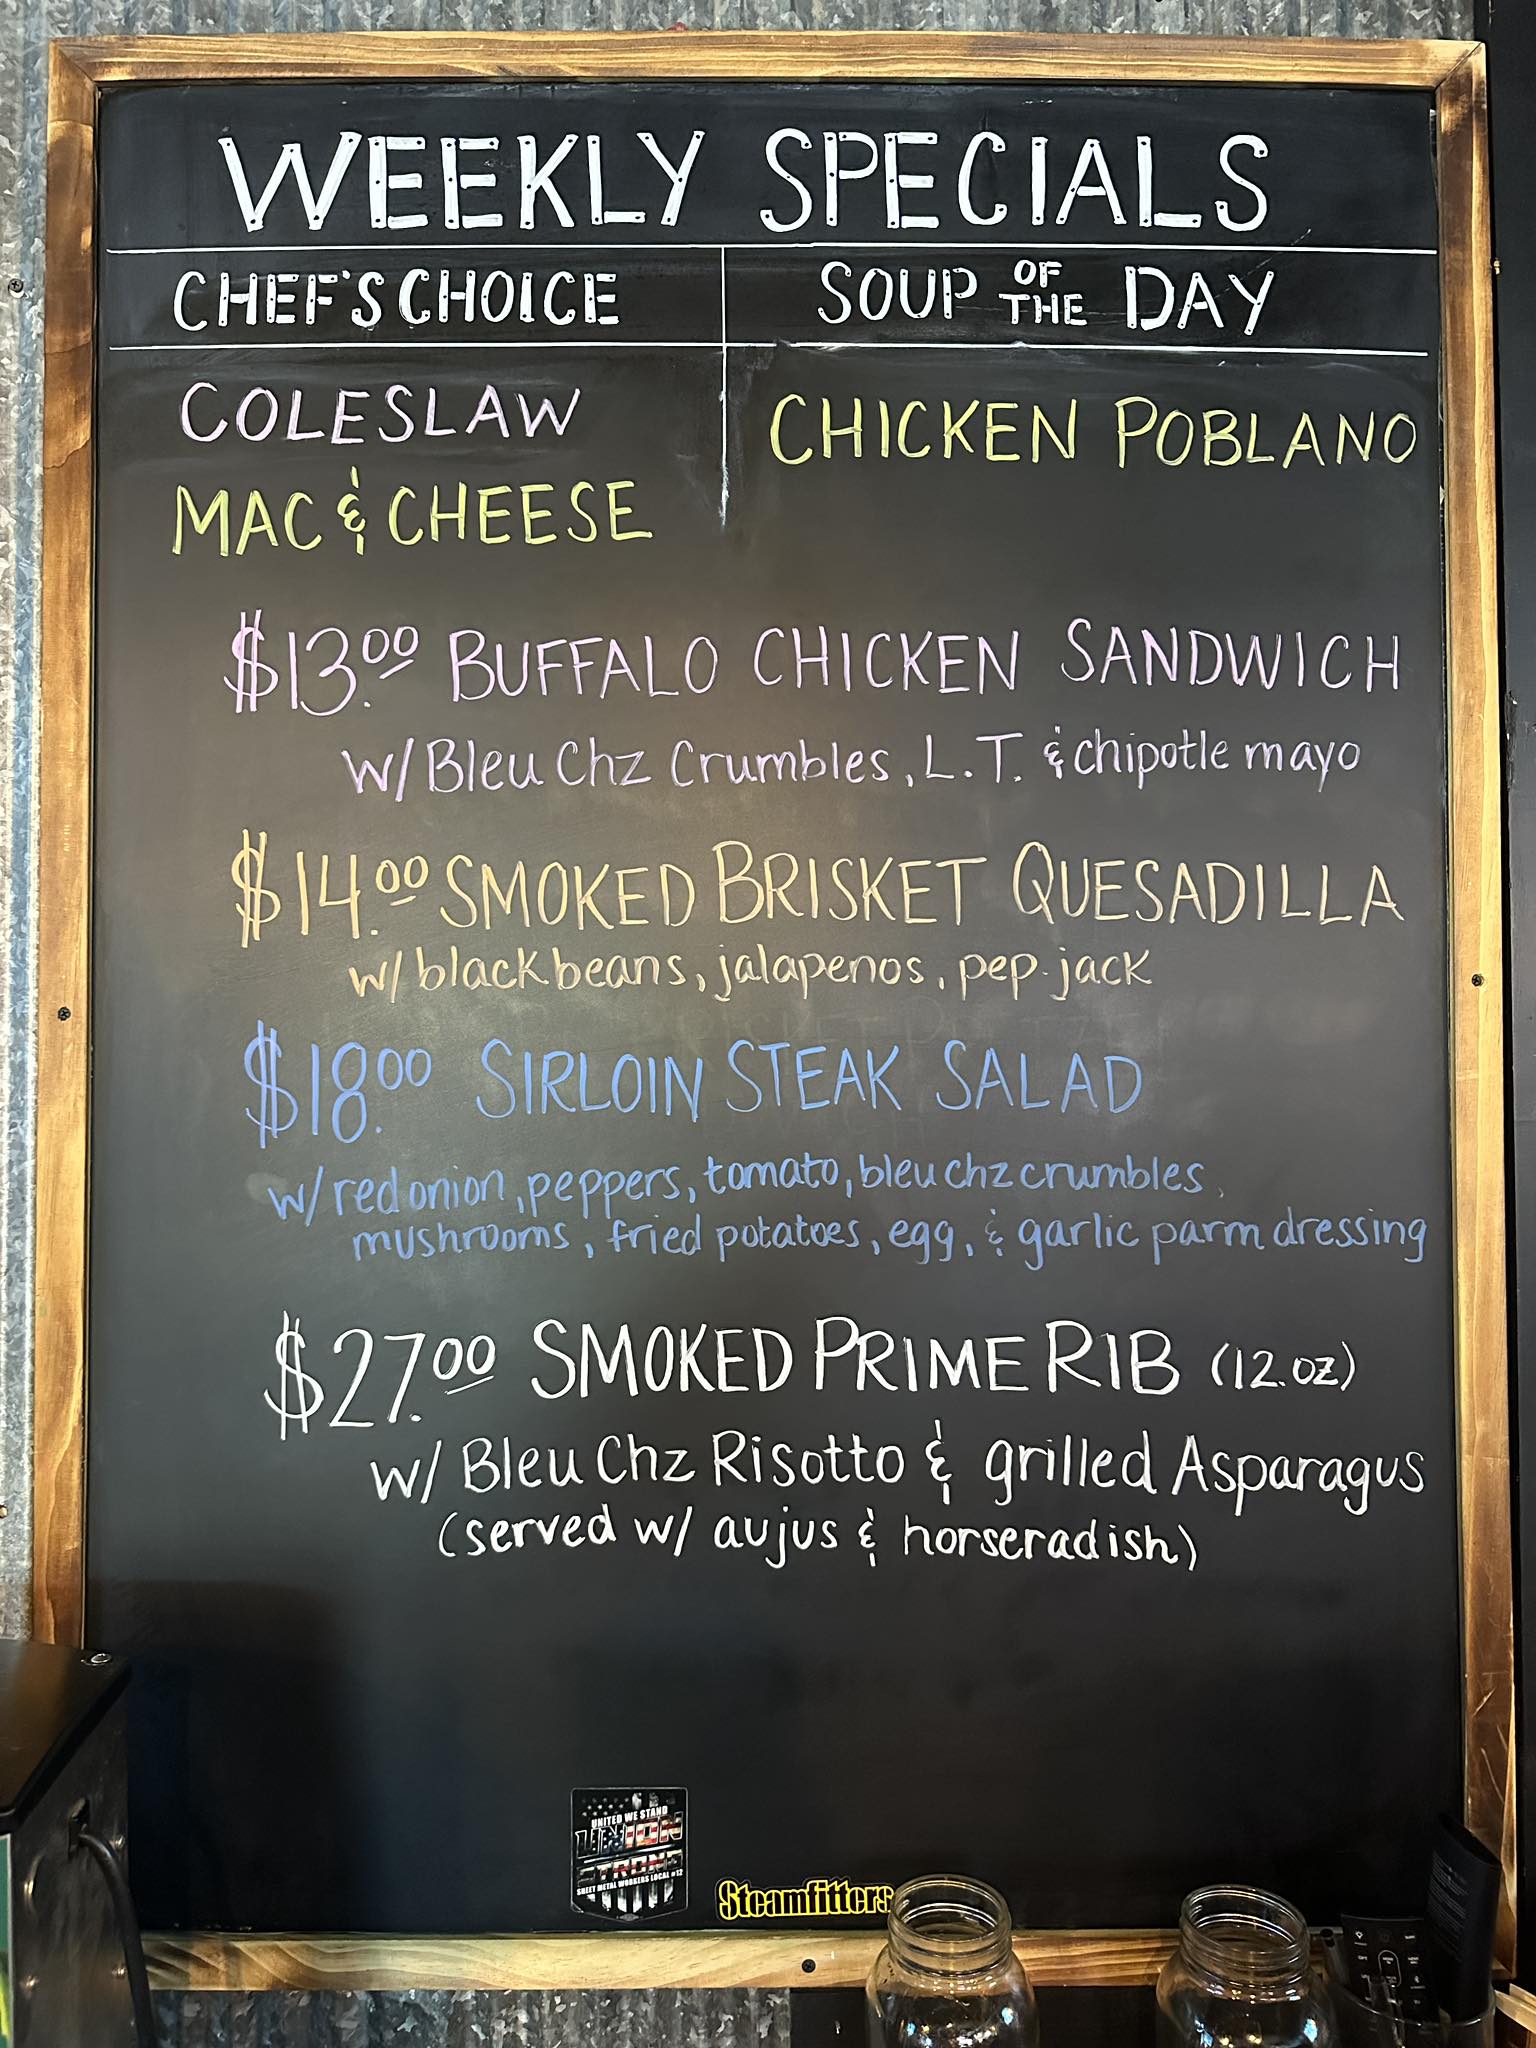 WEEKLY SPECIALS
CHEF'S CHOICE
SOUP OF THE DAY
COLESLAW
MAC & CHEESE
CHICKEN POBLANO
$13.00 BUFFALO CHICKEN SANDWICH
w/ Bleu Chz Crumbles, L.T. & chipotle mayo
$14.00 SMOKED BRISKET QUESADILLA
w/ black beans, jalapenos, pep. jack
$18.00 SIRLOIN STEAK SALAD
w/ red onion, peppers, tomato, bleu chz crumbles,
mushrooms, fried potatoes, egg, & garlic parm dressing
$27.00 SMOKED PRIME RIB (12.oz)
w/ Bleu Chz Risotto & grilled Asparagus
(served w/ aujus & horseradish)
UNITED WE STAND
UNION
STRONG
SHEET METAL WORKERS LOCAL #12
Steamfitters